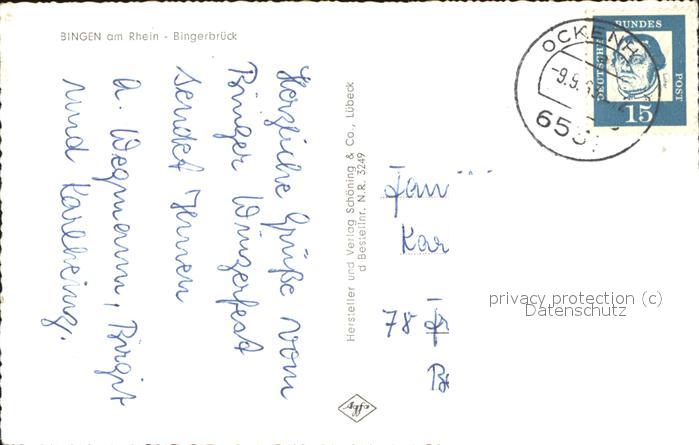 BINGEN am Rhein - Bingerbrück
Herzliche Grüße vom
Binger Winzerfest
sendet Ihnen
A. Wegmann, Birgit
und Karlheinz.
Hersteller und Verlag Schöning & Co., Lübeck
d Bestellnr. N.R. 3249
OCKENH
-9.9.
653
BUNDES
POST
DEUTSCHE
15
Fam
Kar
78 Fr
privacy protection (c)
Datenschutz